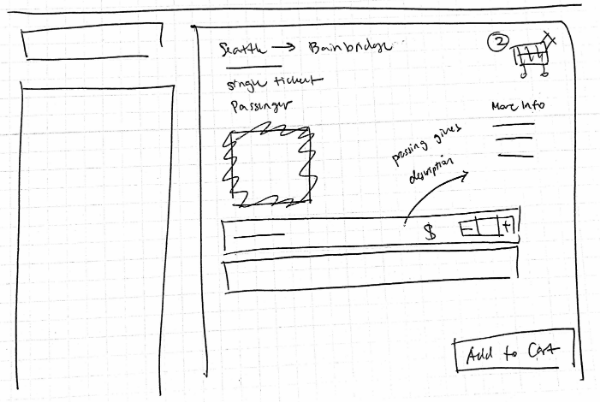 Seattle → Bainbridge
②
Single ticket
Passenger
More Info
pressing gives
description
$
- +
Add to Cart